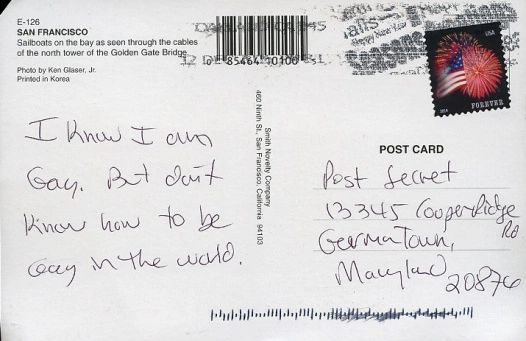 E-126
SAN FRANCISCO
Sailboats on the bay as seen through the cables
of the north tower of the Golden Gate Bridge.
Photo by Ken Glaser, Jr.
Printed in Korea
I know I am
Gay. But don't
know how to be
Gay in the world.
Smith Novelty Company
460 Ninth St., San Francisco, California 94103
USA
FOREVER
2014
POST CARD
Post Secret
13345 Copper Ridge
Rd
Germantown,
Maryland
20874